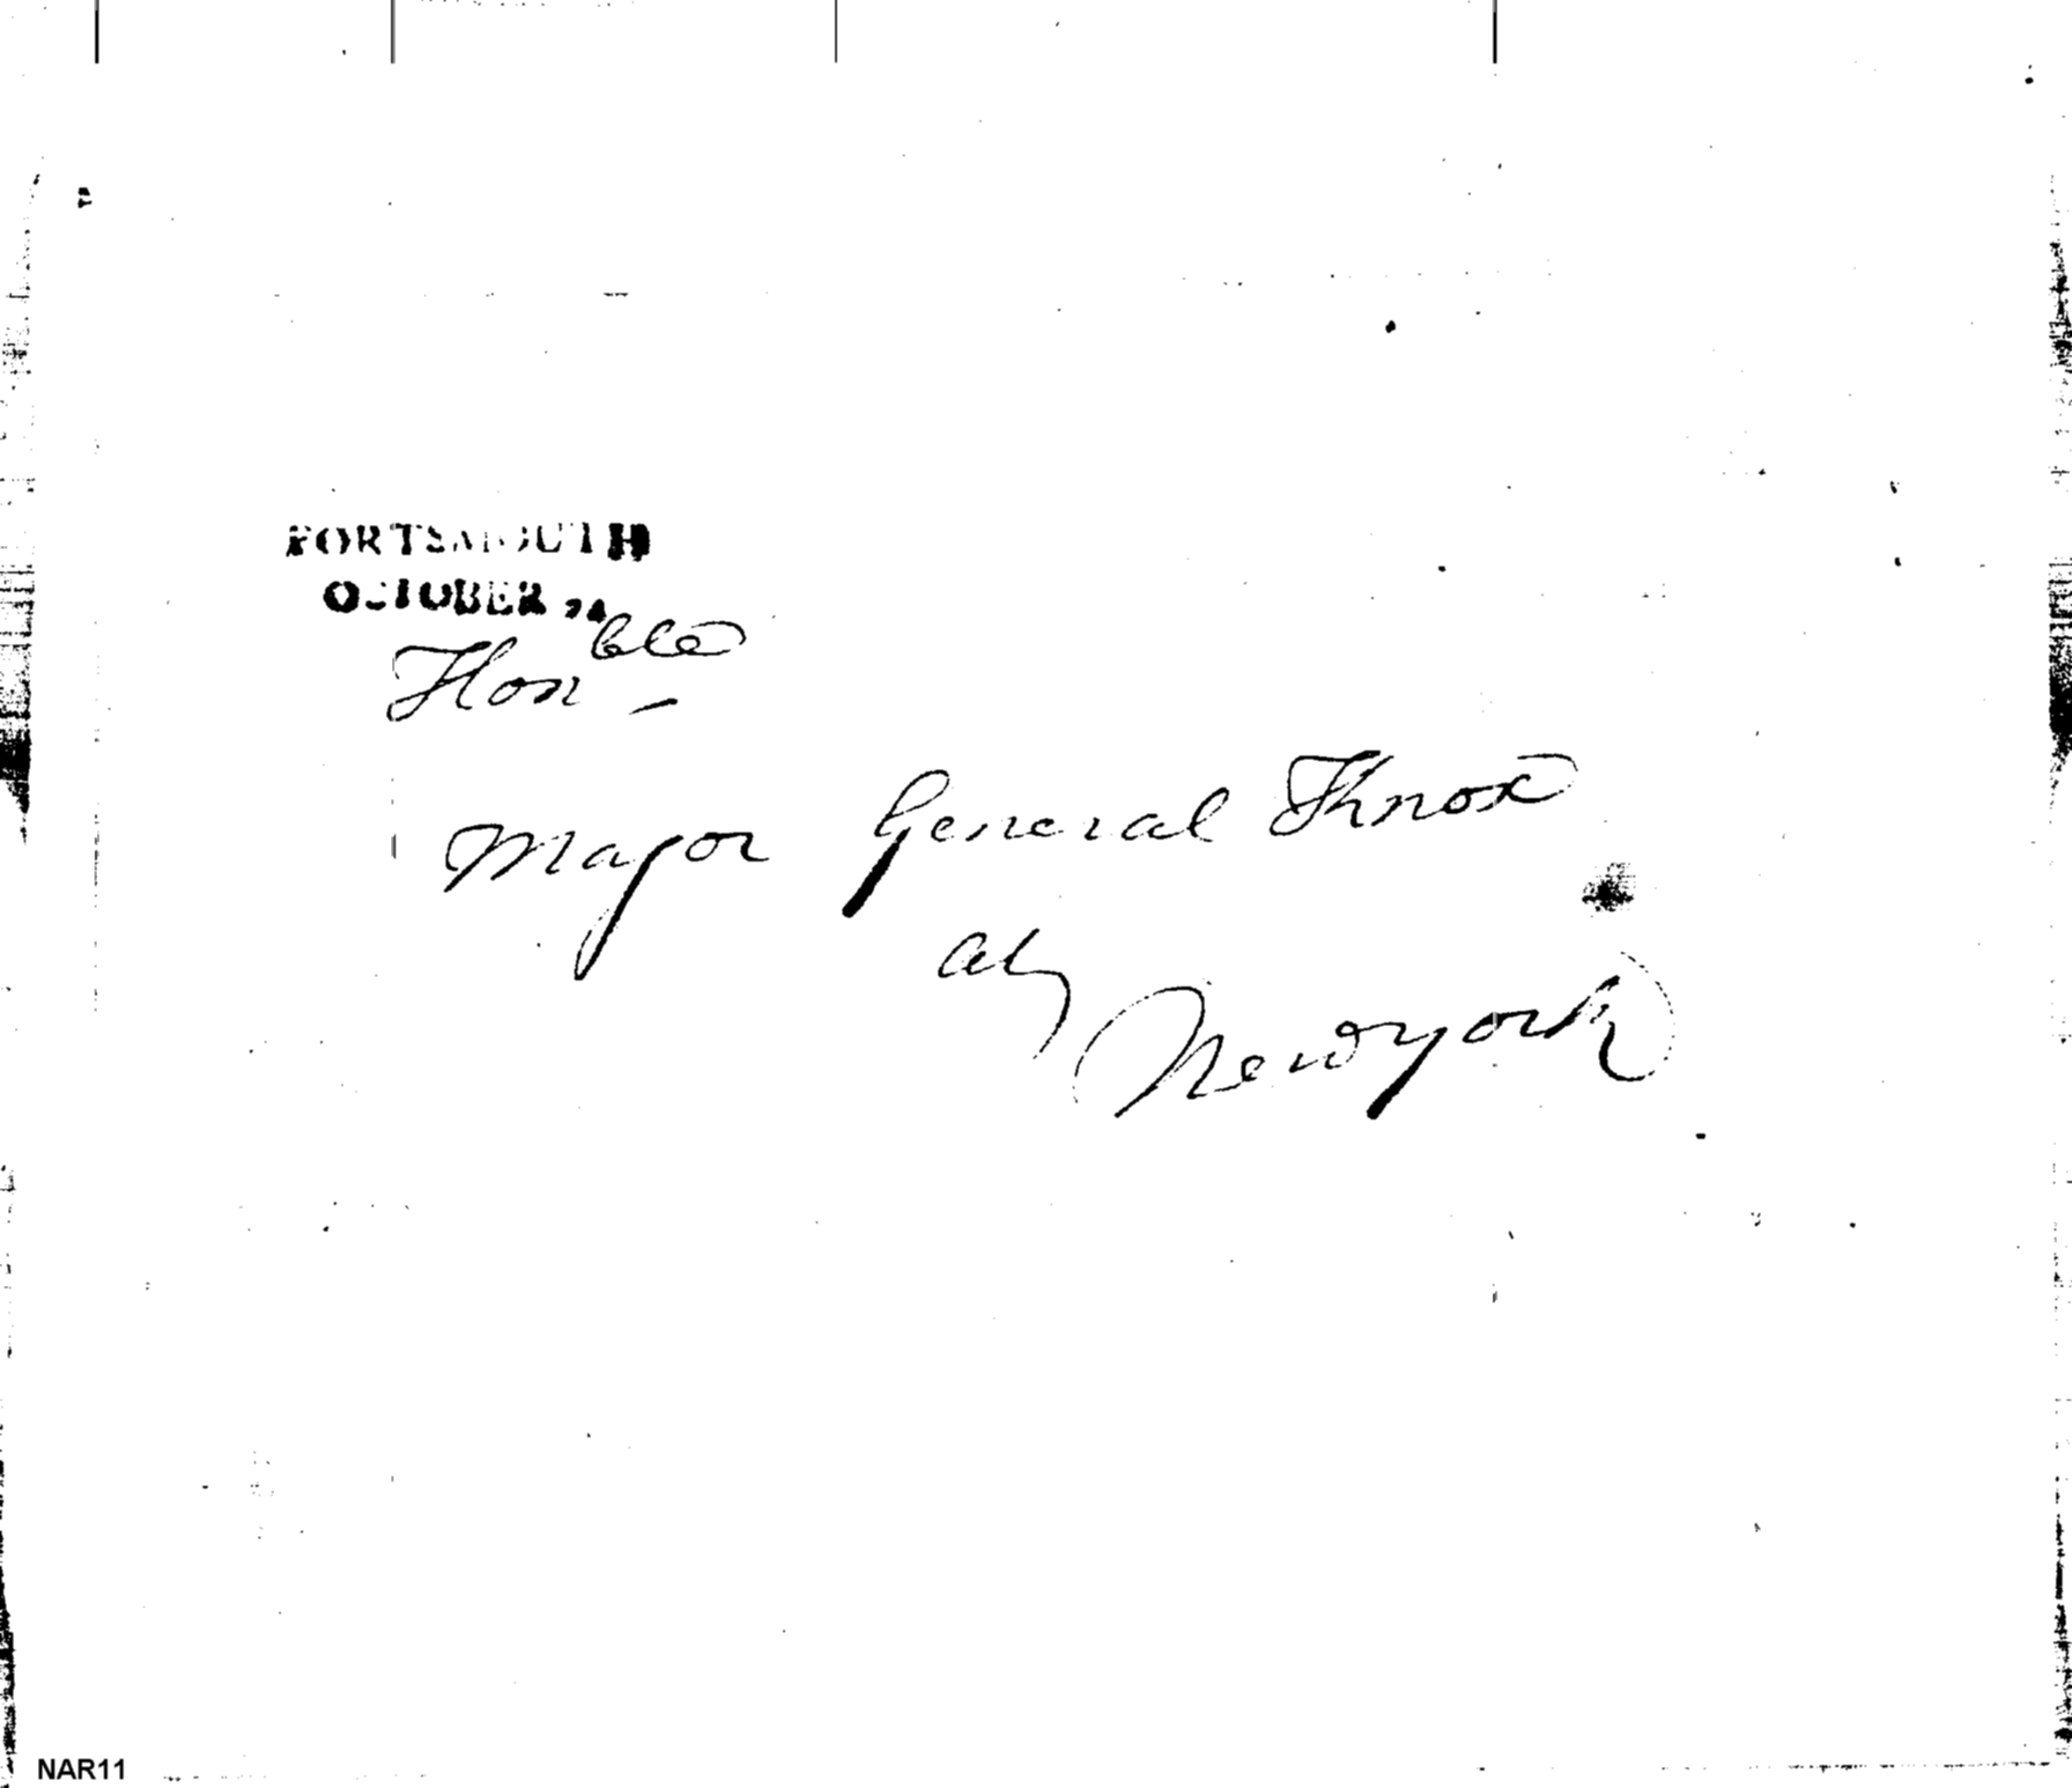 PORTSMOUTH
OCTOBER 24
Honble
Major General Knox
at
Newyork
NAR11